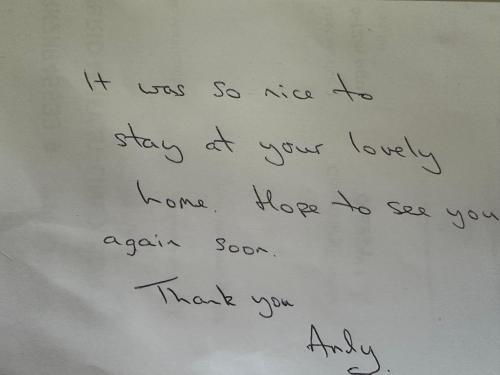 It was so nice to
stay at your lovely
home. Hope to see you
again soon.
Thank you
Andy.